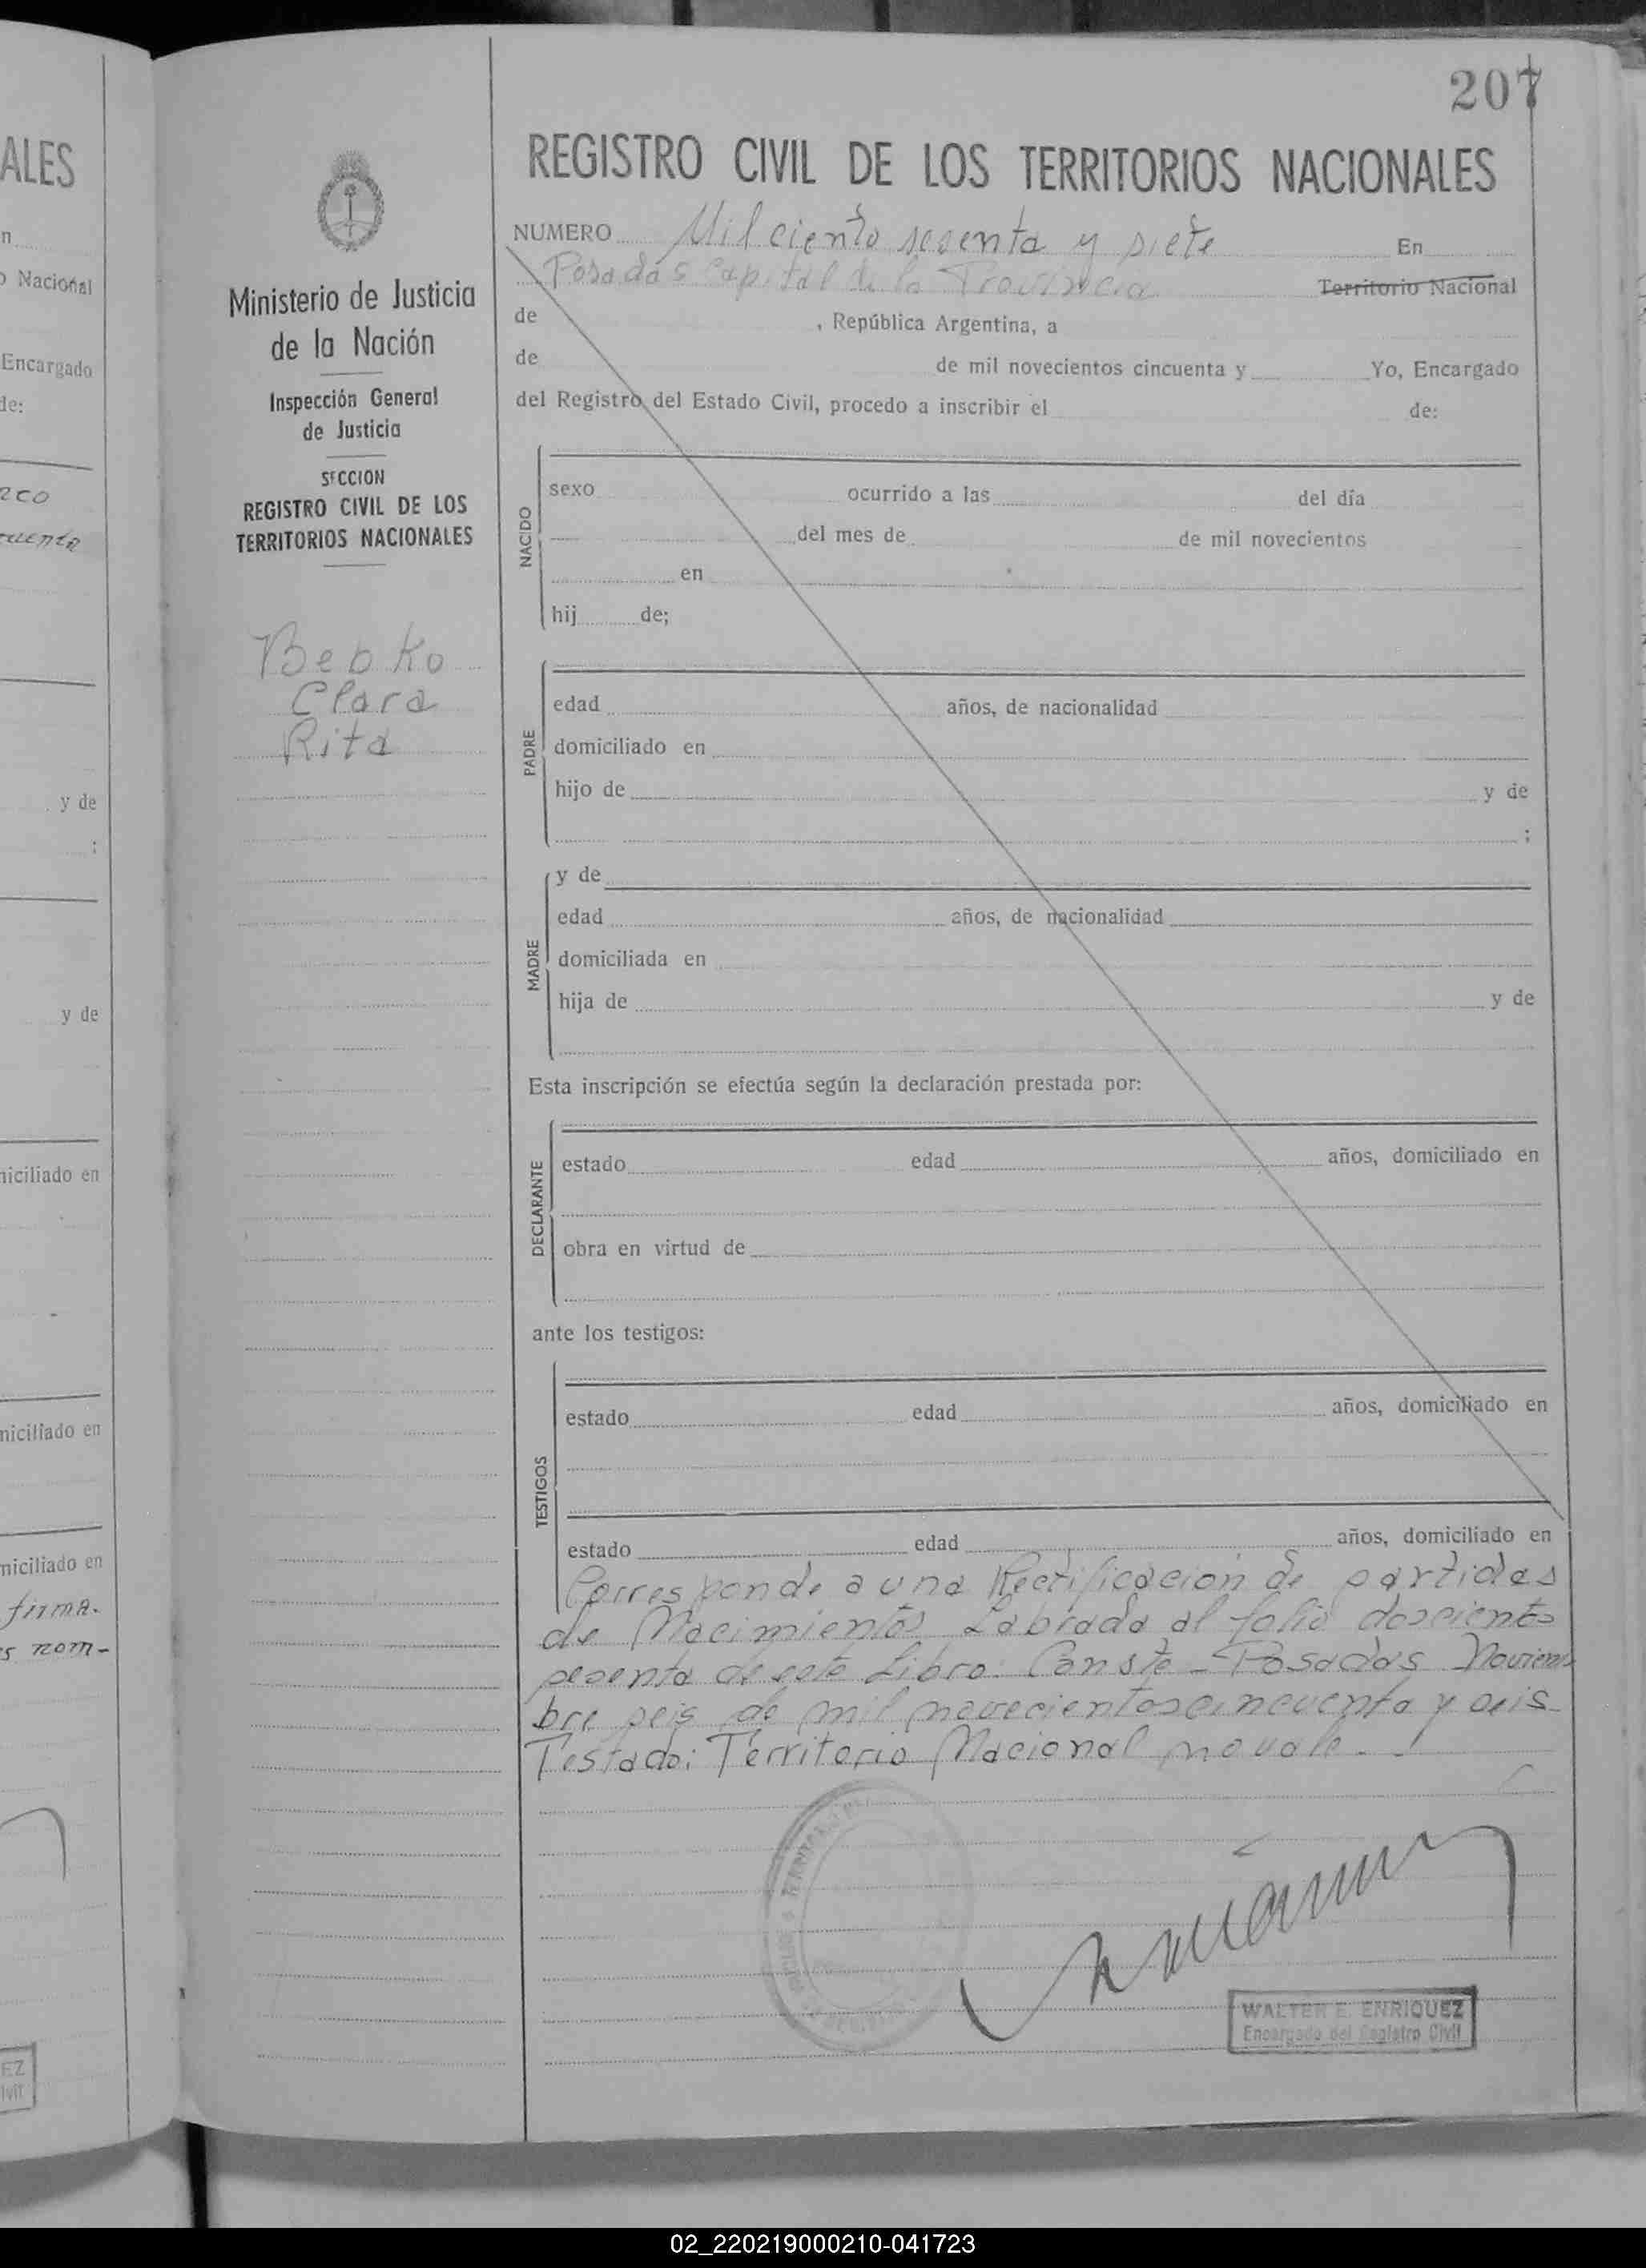 ALES
n
o Nacional
Encargado
de:
y de
:
y de
niciliado en
niciliado en
niciliado en
firma.
s nom-
EZ
207
Ministerio de Justicia
de la Nación
Inspección General
de Justicia
SECCION
REGISTRO CIVIL DE LOS
TERRITORIOS NACIONALES
Bebko
Clara
Rita
REGISTRO CIVIL DE LOS TERRITORIOS NACIONALES
NUMERO Mil ciento sesenta y siete En
Posadas Capital de la Provincia Territorio Nacional
de , República Argentina, a
de de mil novecientos cincuenta y Yo, Encargado
del Registro del Estado Civil, procedo a inscribir el de:
NACIDO
sexo ocurrido a las del día
del mes de de mil novecientos
en
hij de;
PADRE
edad años, de nacionalidad
domiciliado en
hijo de y de
;
MADRE
y de
edad años, de nacionalidad
domiciliada en
hija de y de
Esta inscripción se efectúa según la declaración prestada por:
DECLARANTE
estado edad años, domiciliado en
obra en virtud de
ante los testigos:
TESTIGOS
estado edad años, domiciliado en
estado edad años, domiciliado en
Corresponde a una Rectificación de partidas
de Nacimientos Labrada al folio doscientos
sesenta de este Libro. Conste - Posadas Noviem
bre seis de mil novecientos cincuenta y seis
Testado: Territorio Nacional no vale.
WALTER E. ENRIQUEZ
Encargado del Registro Civil
02_220219000210-041723